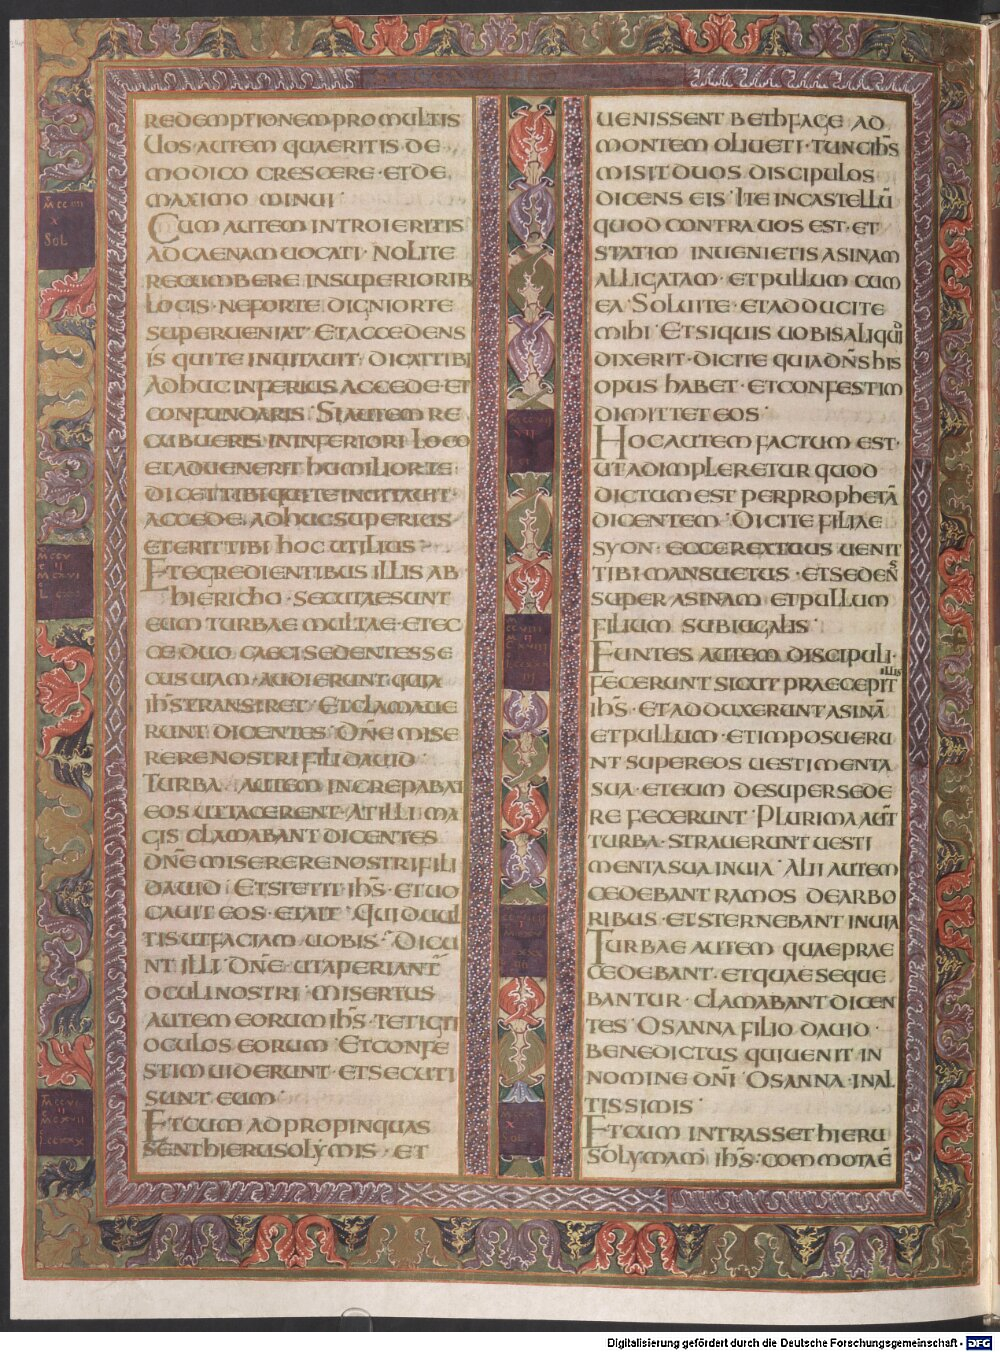 SECUNDUM
REDEMPTIONEM·PRO MULTIS
UOS·AUTEM QUAERITIS·DE
MODICO CRESCERE·ET DE
MAXIMO MINUI·
CUM AUTEM INTROIERITIS
AD CAENAM UOCATI·NOLITE
RECUMBERE IN SUPERIORIB
LOCIS·NE FORTE DIGNIOR TE
SUPERUENIAT·ET ACCEDENS
IS QUI TE INUITAUIT·DICAT TIBI
ADHUC INFERIUS ACCEDE·ET
CONFUNDARIS·SI AUTEM RE
CUBUERIS IN INFERIORI LOCO
ET ADUENERIT HUMILIOR TE·
DICET TIBI QUI TE INUITAUIT·
ACCEDE ADHUC SUPERIUS·
ET ERIT TIBI HOC UTILIUS·
ET EGREDIENTIBUS ILLIS AB
HIERICHO·SECUTAE SUNT
EUM TURBAE MULTAE·ET EC
CE DUO CAECI SEDENTES SE
CUS UIAM·AUDIERUNT QUIA
IHS̄ TRANSIRET·ET CLAMAUE
RUNT DICENTES·DN̄E MISE
RERE NOSTRI FILI DAUID·
TURBA·AUTEM INCREPABAT
EOS UT TACERENT·AT ILLI MA
GIS CLAMABANT DICENTES
DN̄E MISERERE NOSTRI FILI
DAUID·ET STETIT IHS̄·ET UO
CAUIT EOS·ET AIT·QUID UUL
TIS UT FACIAM UOBIS·DICU
NT ILLI·DN̄E·UT APERIANT̄
OCULI NOSTRI·MISERTUS
AUTEM EORUM IHS̄·TETIGIT
OCULOS EORUM·ET CONFE
STIM UIDERUNT·ET SECUTI
SUNT EUM·
ET CUM ADPROPINQUAS
SENT HIERUSOLYMIS·ET
UENISSENT BETHFAGE AD
MONTEM OLIUETI·TUNC IHS̄
MISIT DUOS DISCIPULOS
DICENS EIS·ITE IN CASTELLŪ
QUOD CONTRA UOS EST·ET
STATIM INUENIETIS ASINAM
ALLIGATAM·ET PULLUM CUM
EA·SOLUITE·ET ADDUCITE
MIHI·ET SI QUIS UOBIS ALIQUID
DIXERIT·DICITE QUIA DN̄S HIS
OPUS HABET·ET CONFESTIM
DIMITTET EOS·
HOC AUTEM FACTUM EST·
UT ADIMPLERETUR QUOD
DICTUM EST PER PROPHETĀ
DICENTEM·DICITE FILIAE
SYON·ECCE REX TUUS UENIT
TIBI MANSUETUS·ET SEDENS
SUPER ASINAM ET PULLUM
FILIUM SUBIUGALIS·
EUNTES AUTEM DISCIPULI·
FECERUNT SICUT PRAECEPIT ILLIS
IHS̄·ET ADDUXERUNT ASINĀ
ET PULLUM·ET IMPOSUERU
NT SUPER EOS UESTIMENTA
SUA·ET EUM DESUPER SEDE
RE FECERUNT·PLURIMA AUT̄
TURBA·STRAUERUNT UESTI
MENTA SUA IN UIA·ALII AUTEM
CEDEBANT RAMOS DE ARBO
RIBUS·ET STERNEBANT IN UIA
TURBAE AUTEM QUAE PRAE
CEDEBANT·ET QUAE SEQUE
BANTUR·CLAMABANT DICEN
TES·OSANNA FILIO DAUID·
BENEDICTUS QUI UENIT IN
NOMINE DN̄I·OSANNA·IN AL
TISSIMIS·
ET CUM INTRASSET HIERU
SOLYMAM IHS̄·COMMOTA Ē
Digitalisierung gefördert durch die Deutsche Forschungsgemeinschaft - DFG